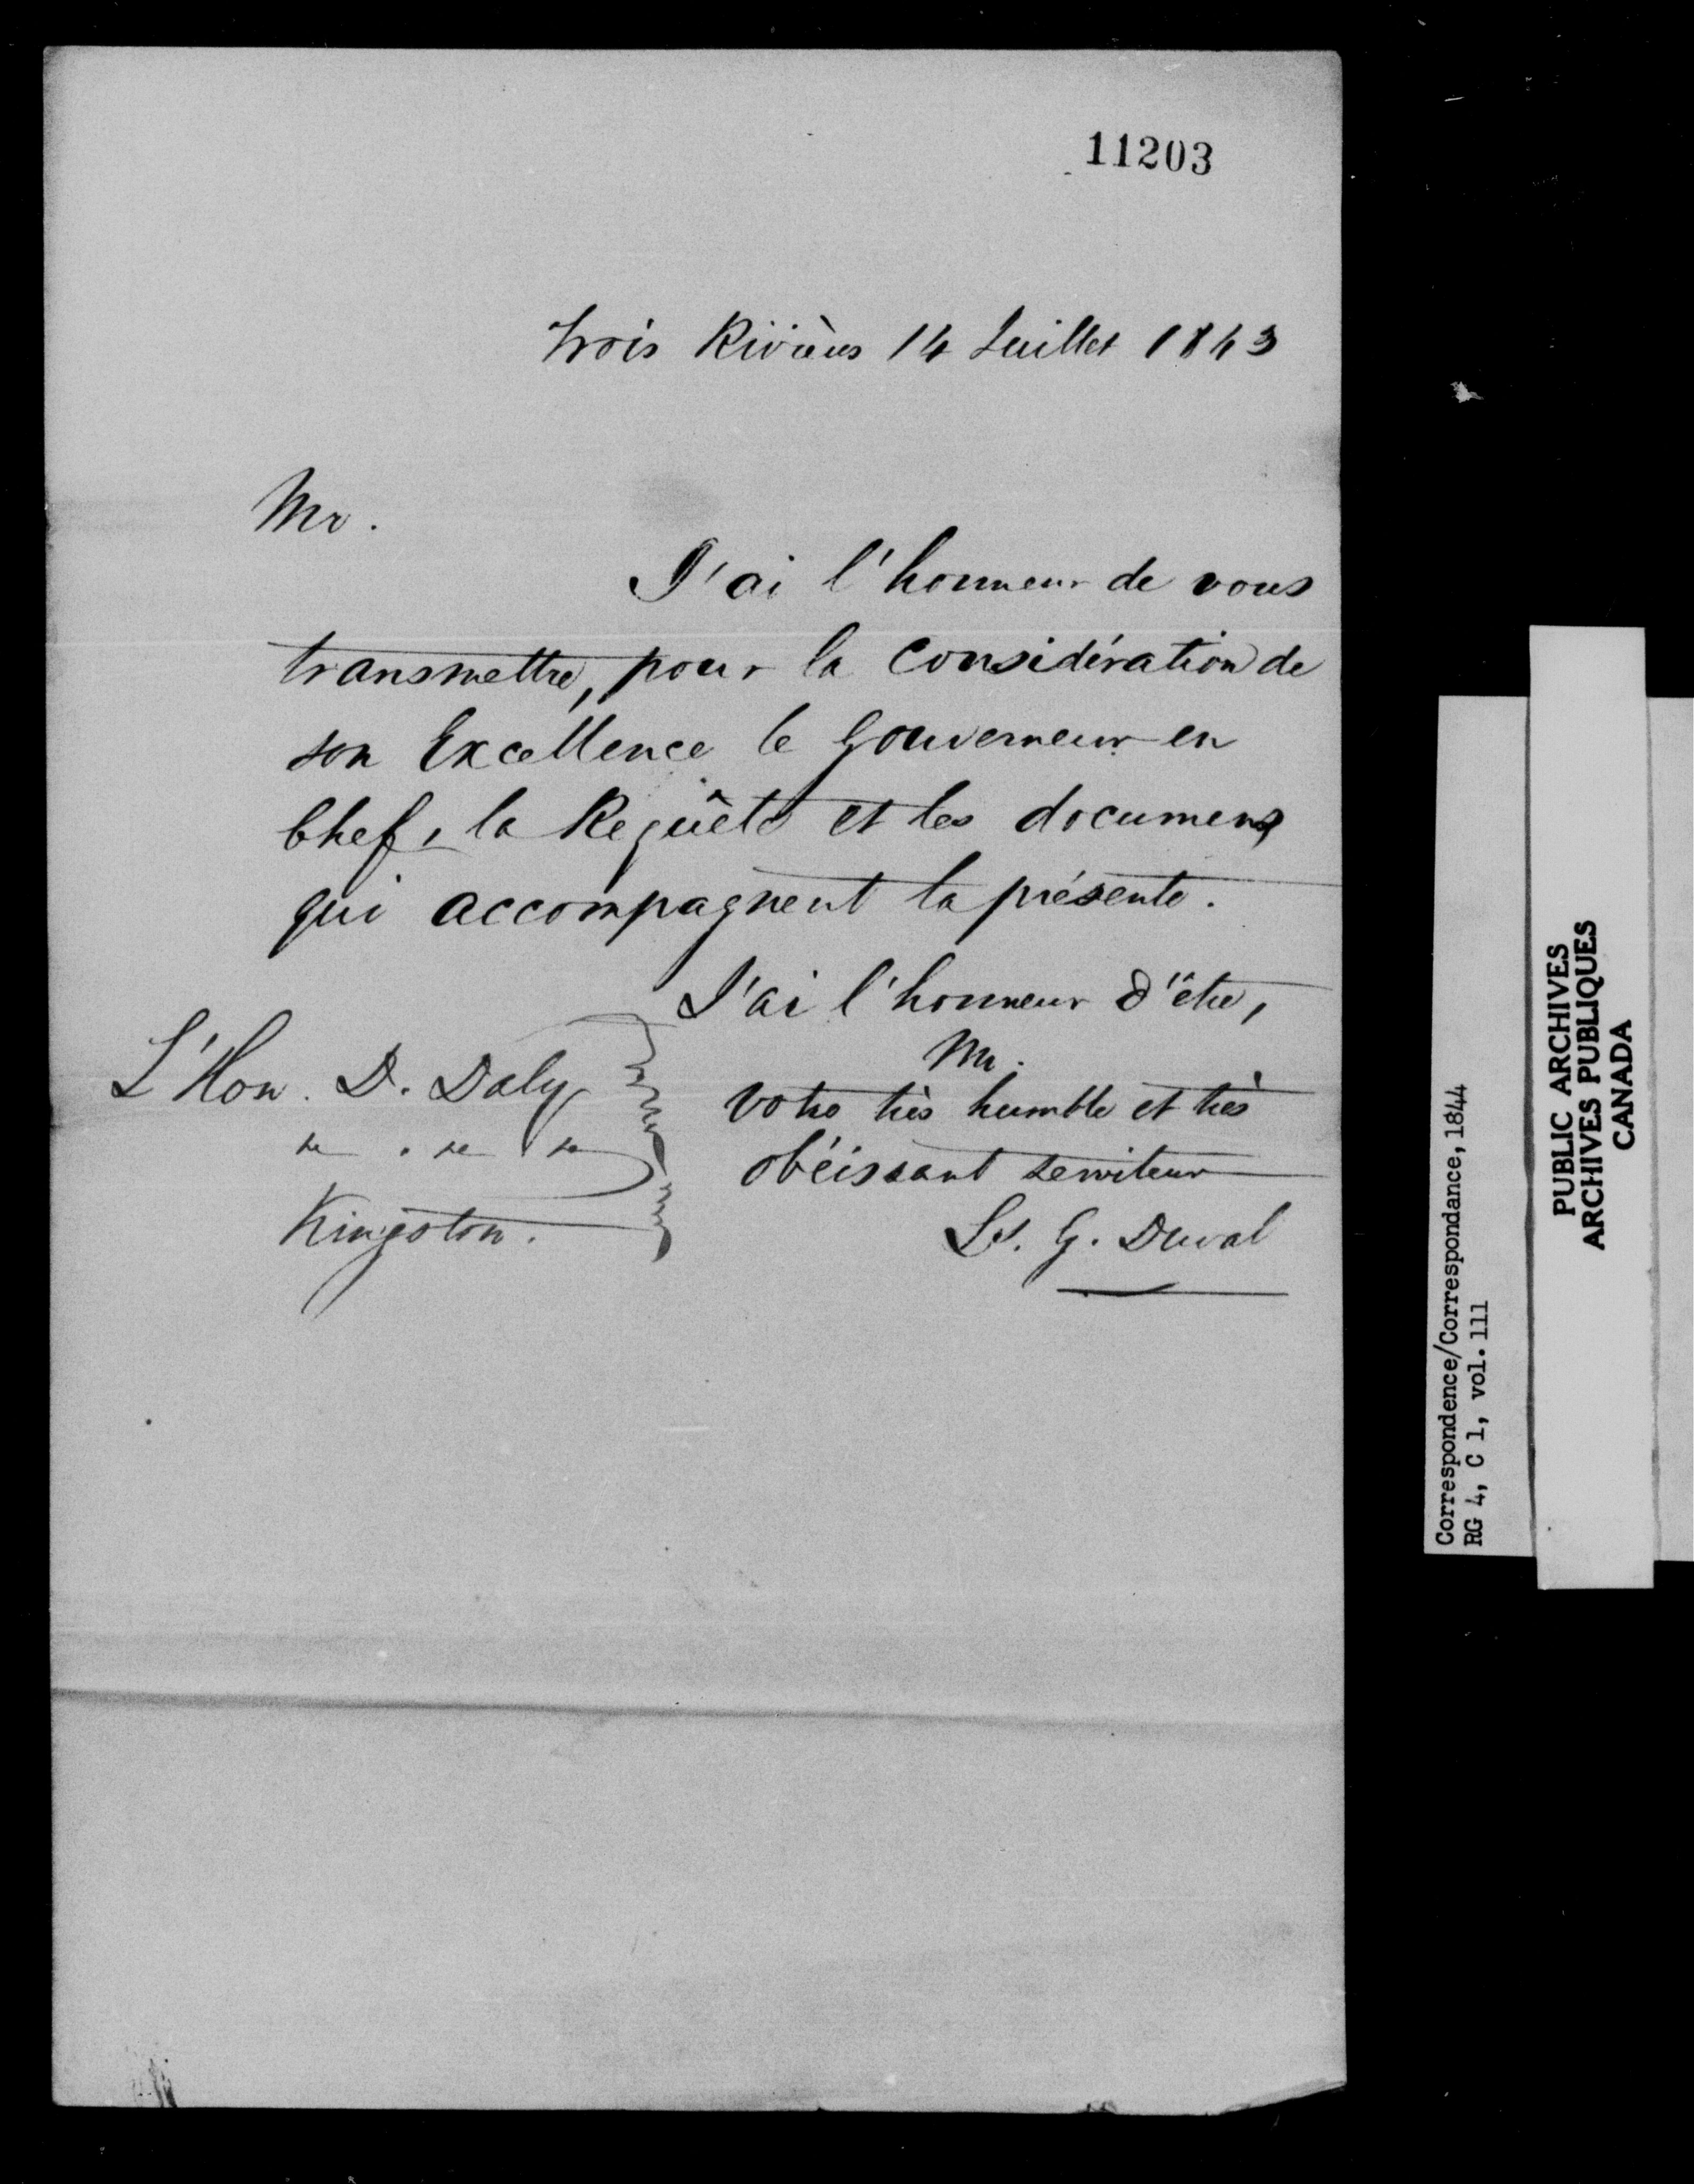 11203
Trois Rivières 14 Juillet 1843
Mr.
J'ai l'honneur de vous
transmettre, pour la Considération de
son Excellence le Gouverneur en
Chef, la Requête et les documens
qui accompagnent la présente.
J'ai l'honneur d'être,
Mr.
Votre très humble et très
obéissant serviteur
Ls. G. Duval
L'Hon. D. Daly
Kingston.
Correspondence/Correspondance, 1844
RG 4, C 1, vol. 111
PUBLIC ARCHIVES
ARCHIVES PUBLIQUES
CANADA